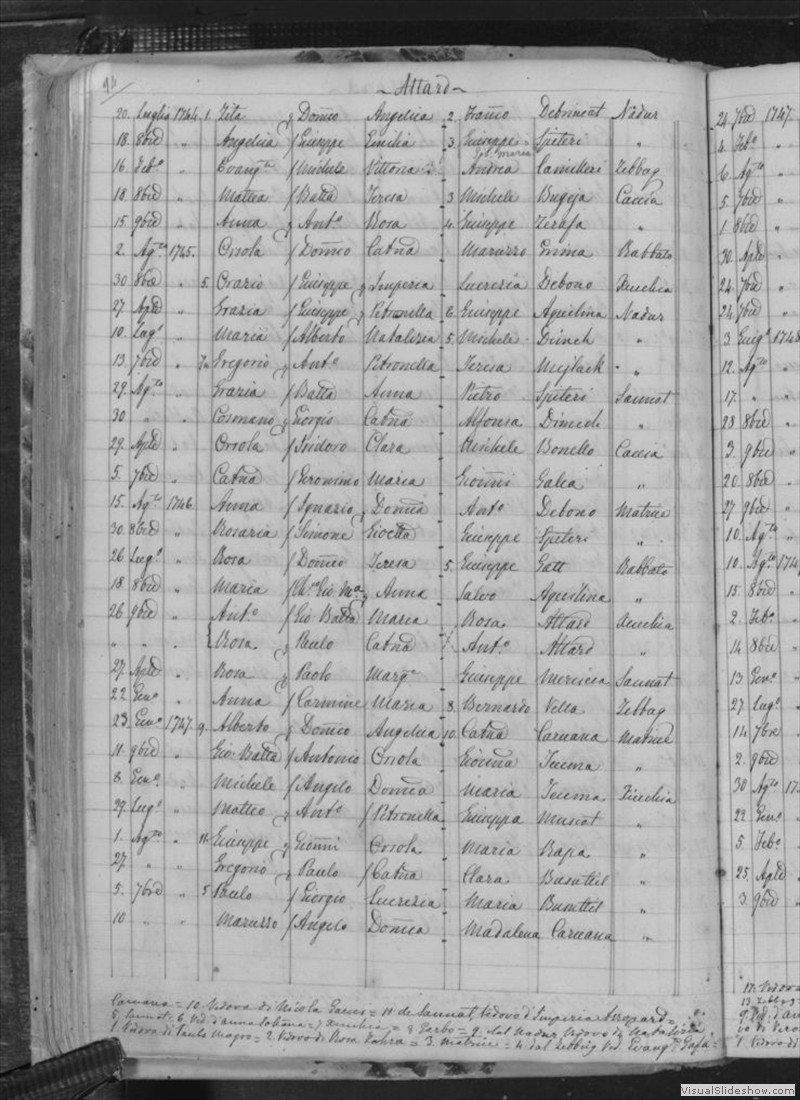 94
~ Attard ~
20. Luglio 1744. 1. Zita Domco Angelica 2. Debrincat Nadur
18. 8bre " Angelica Giuseppe Emilia 3. Giuseppe Spiteri "
Maria
16. Febo " Evangta Michele Vittoria Andrea Camilleri Zebbug
18. 8bre " Mattea Batta Teresa 3 Michele Bugeja Caccia
15. 9bre " Anna Anto Rosa 4. Giuseppe Zerafa "
2. Agto 1745. Orsola Domco Catna Maruzzo Emma Rabbato
30. 8bre " 5. Orazio Giuseppe Imperia Lucrezia Debono Xeuchia
27. Aple " Grazia Giuseppe Petronella 6. Giuseppe Aquilina Nadur
10. Lugo " Maria Alberto Natalizia 5. Michele Dimech "
13. 7bre " 7. Gregorio Anto Petronella Teresa Mejlack "
29. Agto " Grazia Batta Anna Pietro Spiteri Sannat
30 " " Cosmano Giorgio Catna Alfonsa Dimech "
29. Aple " Orsola Isidoro Clara Michele Bonello Caccia
5. 7bre " Catna Geronimo Maria Gionni Galea "
15. Agto 1746. Anna Ignazio Domca Anto Debono Matrice
30. 8bre " Rosaria Simone Gioetta Giuseppe Spiteri "
26 Lugo " Rosa Domco Teresa 5. Giuseppe Gatt Rabbato
18. 8bre " Maria Gio Ma Anna Salvo Agustina "
26 9bre " Anto Gio Batta Maria Rosa Attard Xeuchia
" " " Rosa Paulo Catna Anto Attard "
27. Aple " Rosa Paolo Marga Giuseppe Mercieca Sannat
22 Geno " Anna Carmine Maria 8. Bernardo Vella Zebbug
23. Geno 1747. 9. Alberto Domco Angelica 10. Catna Caruana Matrice
11. 9bre " Gio Batta Antonio Orsola Giocna Tuema "
8. Geno " Michele Angelo Domca Maria Tuema Xeuchia
29. Lugo " Matteo Anto Petronella Giuseppa Muscat "
1. Agto " 11. Giuseppe Gionni Orsola Maria Rapa "
27. " " Gregorio Paulo Catna Clara Busuttil "
5. 7bre " 5 Paulo Giorgio Lucrezia Maria Busuttil "
10 " " Maruzzo Angelo Domca Madalena Caruana "
Caruana = 10. Vedova di Nicola Gauci = 11 di Sannat, Vedovo d'Imperia =
5. Sannat = 6. Ved. d'Anna = 7 Xeuchia = 8 Garbo = 9. dal Nadur Vedovo di Natalizia
1. Vedova di Paulo Magro = 2. Vedovo di Rosa = 3. Matrice = 4. dal Zebbug Ved. Evangta =
24. 7bre 1747.
4. Febo "
6. Agto "
5. 7bre "
1. 8bre "
30. Aple "
24. 7bre "
24. 7bre "
3 Giugo 1748
12. Agto
17. "
28 8bre
3. 9bre
20. 8bre
27 9bre
10. Agto
10. Agto 174
15. 8bre
2. Febo
14 8bre
13 Geno
27 Lugo
14 7bre
2. 9bre
30 Agto 17
22 Geno
5. Febo
25. Aple
3. 9bre
1 Vedovo di
VisualSlideshow.com